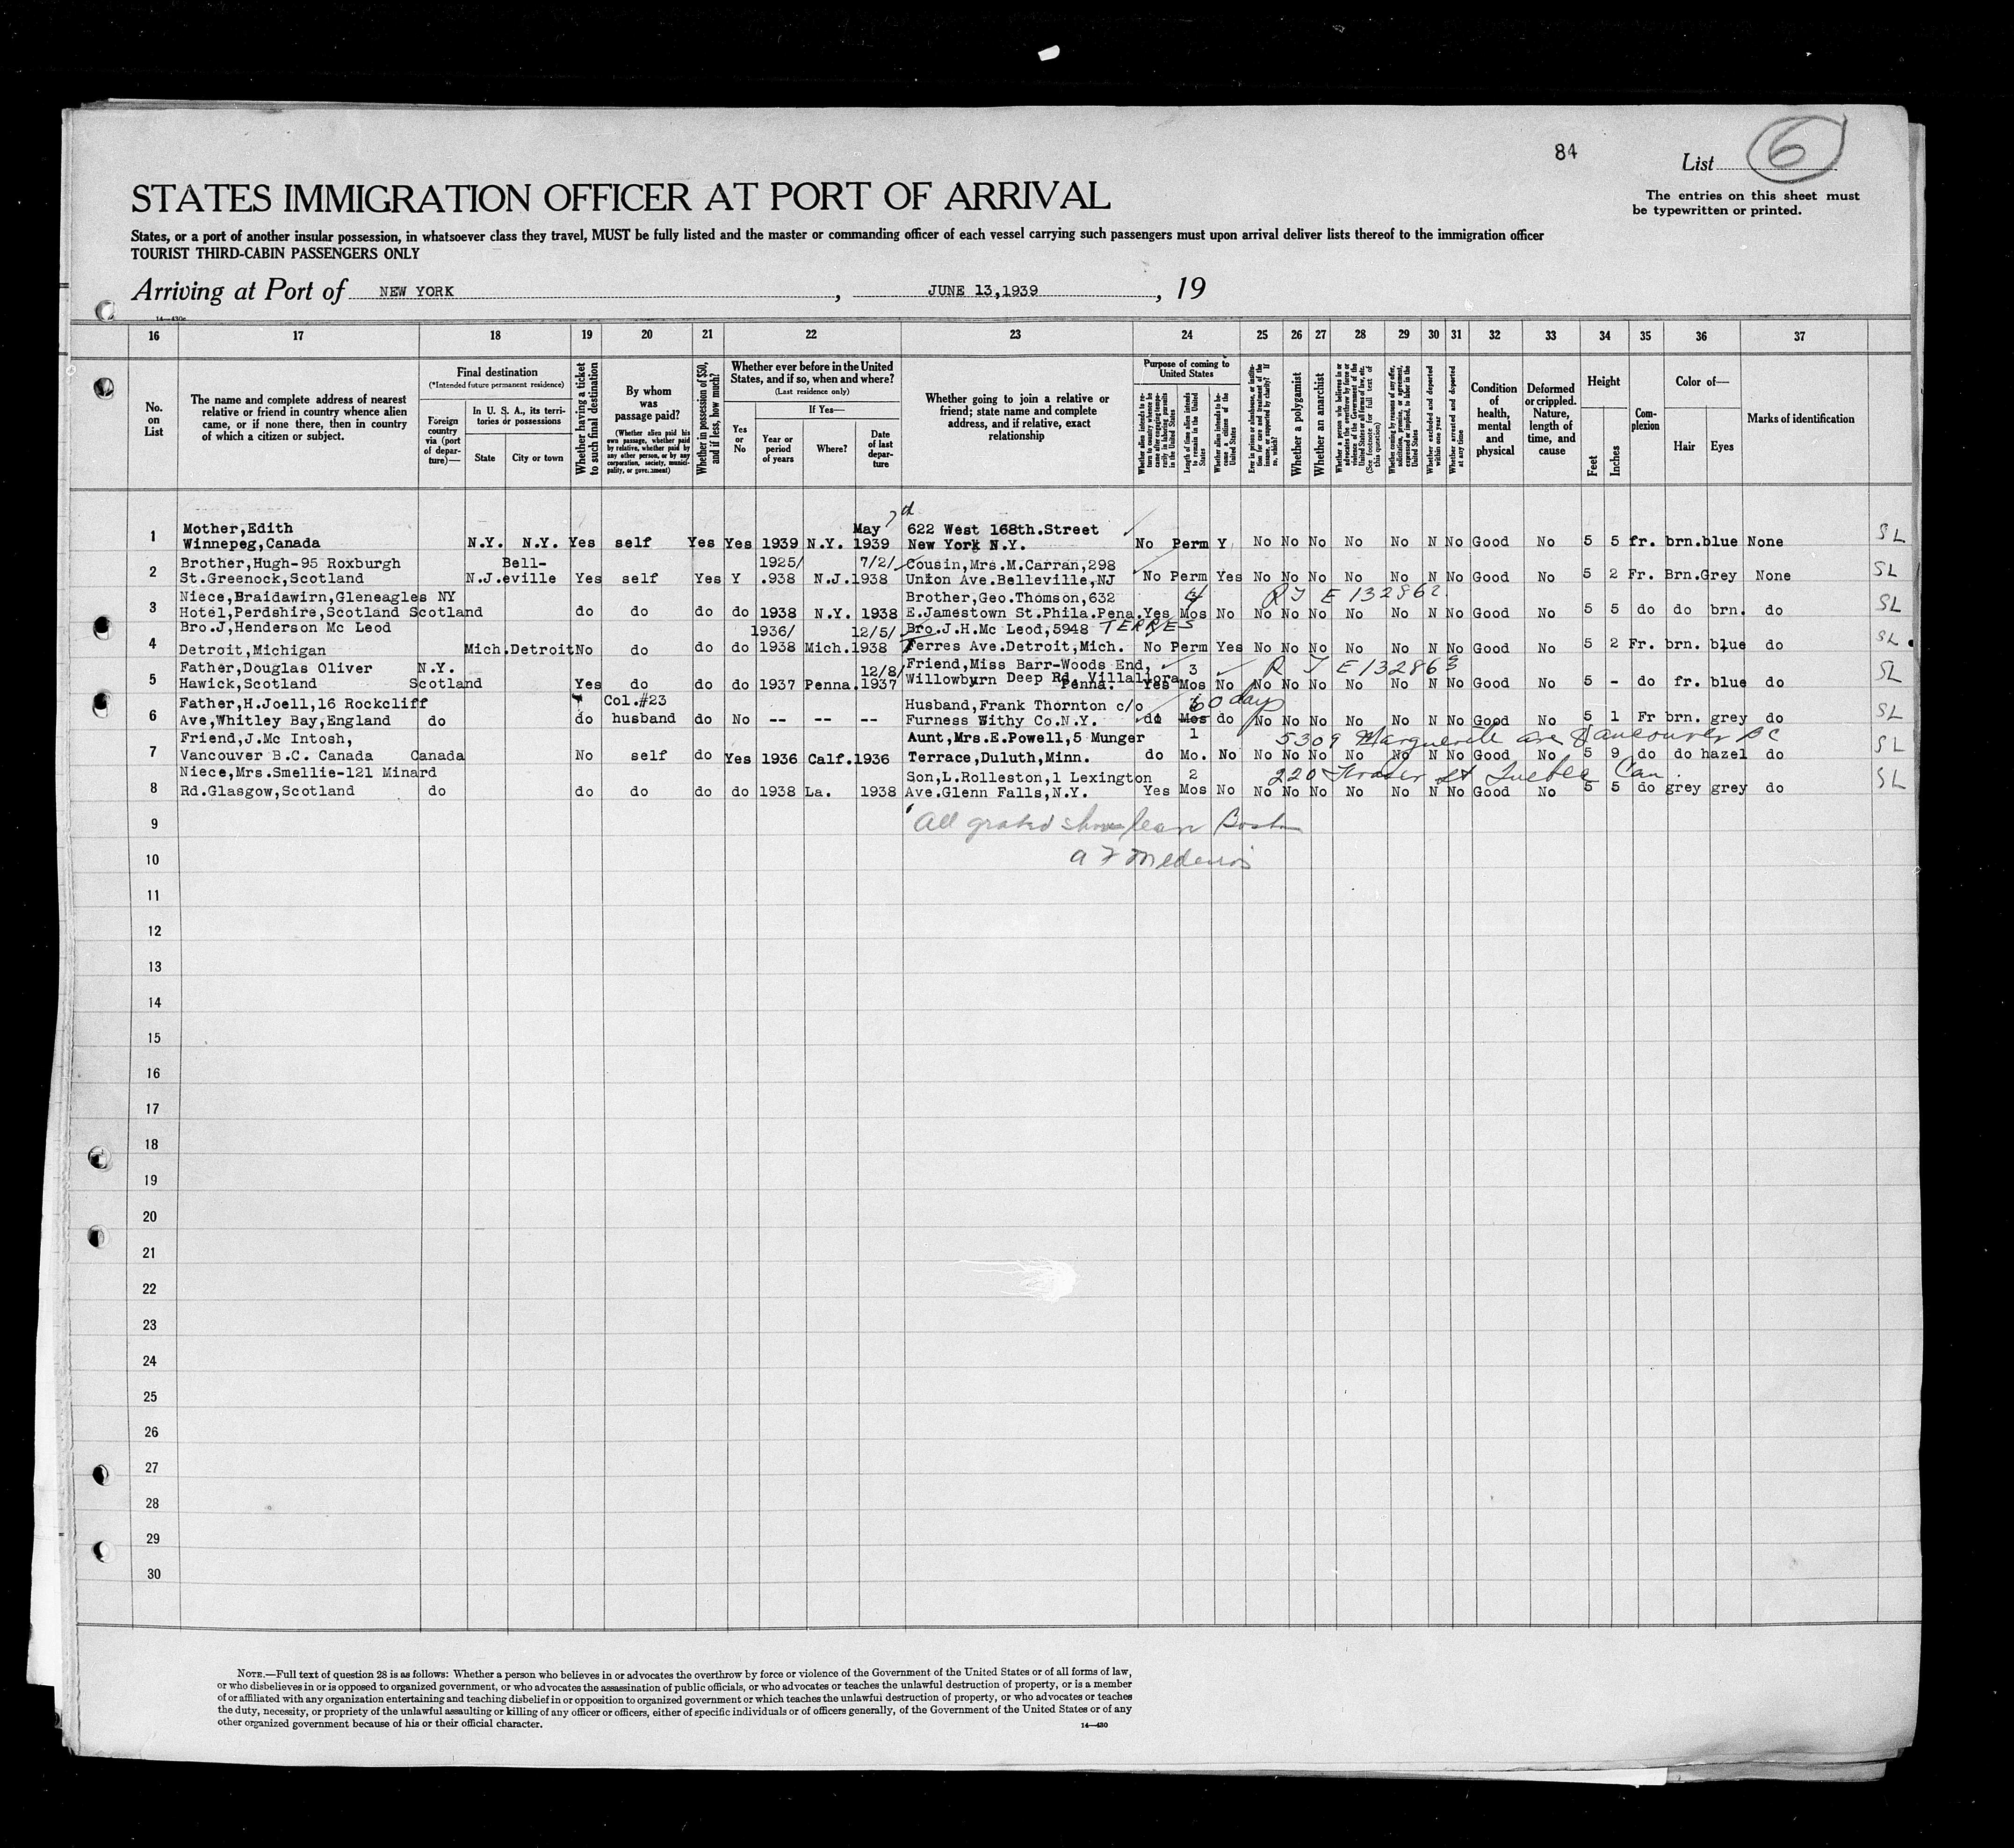 84
List 6
STATES IMMIGRATION OFFICER AT PORT OF ARRIVAL
The entries on this sheet must
be typewritten or printed.
States, or a port of another insular possession, in whatsoever class they travel, MUST be fully listed and the master or commanding officer of each vessel carrying such passengers must upon arrival deliver lists thereof to the immigration officer
TOURIST THIRD-CABIN PASSENGERS ONLY
Arriving at Port of NEW YORK, JUNE 13,1939, 19
16 17 18 19 20 21 22 23 24 25 26 27 28 29 30 31 32 33 34 35 36 37
No. on List
The name and complete address of nearest relative or friend in country whence alien came, or if none there, then in country of which a citizen or subject.
Final destination
(*Intended future permanent residence)
Foreign country via (port of departure)—
In U. S. A., its territories or possessions
State
City or town
Whether having a ticket to such final destination
By whom was passage paid?
(Whether alien paid his own passage, whether paid by relative, whether paid by any other person, or by any corporation, society, municipality, or government)
Whether in possession of $50, and if less, how much?
Whether ever before in the United States, and if so, when and where?
(Last residence only)
Yes or No
If Yes—
Year or period of years
Where?
Date of last departure
Whether going to join a relative or friend; state name and complete address, and if relative, exact relationship
Purpose of coming to United States
Whether alien intends to return to country whence he came after engaging temporarily in laboring pursuits in the United States
Length of time alien intends to remain in the United States
Whether alien intends to become a citizen of the United States
Ever in prison or almshouse, or institution for care and treatment of the insane, or supported by charity? If so, which?
Whether a polygamist
Whether an anarchist
Whether a person who believes in or advocates the overthrow by force or violence of the Government of the United States or all forms of law, etc. (See footnote for full text of this question)
Whether coming by reasons of any offer, solicitation, promise, or agreement, expressed or implied, to labor in the United States
Whether excluded and deported within one year
Whether arrested and deported at any time
Condition of health, mental and physical
Deformed or crippled. Nature, length of time, and cause
Height
Feet
Inches
Complexion
Color of—
Hair
Eyes
Marks of identification
May 7th 622 West 168th.Street
1 Mother,Edith
Winnepeg,Canada N.Y. N.Y. Yes self Yes Yes 1939 N.Y. 1939 New York N.Y. No Perm Y No No No No No N No Good No 5 5 fr. brn. blue None SL
2 Brother,Hugh-95 Roxburgh Bell- 1925/ 7/2/ Cousin,Mrs.M.Carran,298
St.Greenock,Scotland N.J.eville Yes self Yes Y .938 N.J. 1938 Union Ave.Belleville,NJ No Perm Yes No No No No No N No Good No 5 2 Fr. Brn. Grey None SL
3 Niece,Braidawirn,Gleneagles NY Brother,Geo.Thomson,632 4 RJ E 132862
Hotel,Perdshire,Scotland Scotland do do do do 1938 N.Y. 1938 E.Jamestown St.Phila.Pena. Yes Mos No No No No No No N No Good No 5 5 do do brn. do SL
4 Bro.J,Henderson Mc Leod 1936/ 12/5/ Bro.J.H.Mc Leod,5948 TERRES
Detroit,Michigan Mich.Detroit No do do do 1938 Mich. 1938 Ferres Ave.Detroit,Mich. No Perm Yes No No No No No N No Good No 5 2 Fr. brn. blue do SL
5 Father,Douglas Oliver N.Y. 12/8/ Friend,Miss Barr-Woods End, 3 RJ E132863
Hawick,Scotland Scotland Yes do do do 1937 Penna. 1937 Willowburn Deep Rd. Villallora Penna. Yes Mos No No No No No No N No Good No 5 - do fr. blue do SL
6 Father,H.Joell,16 Rockcliff Col.#23 Husband,Frank Thornton c/o 60 days
Ave,Whitley Bay,England do do husband do No -- -- -- Furness Withy Co.N.Y. do Mos do No No No No No N No Good No 5 1 Fr brn. grey do SL
7 Friend,J.Mc Intosh, Aunt,Mrs.E.Powell,5 Munger 1 5309 Marguerite ave Vancouver BC
Vancouver B.C. Canada Canada No self do Yes 1936 Calf. 1936 Terrace,Duluth,Minn. do Mo. No No No No No No N No Good No 5 9 do do hazel do SL
8 Niece,Mrs.Smellie-121 Minard Son,L.Rolleston,1 Lexington 2 220 St Quebec Can.
Rd.Glasgow,Scotland do do do do do 1938 La. 1938 Ave.Glenn Falls,N.Y. Yes Mos No No No No No No N No Good No 5 5 do grey grey do SL
9 All Boston
10
11
12
13
14
15
16
17
18
19
20
21
22
23
24
25
26
27
28
29
30
NOTE.—Full text of question 28 is as follows: Whether a person who believes in or advocates the overthrow by force or violence of the Government of the United States or of all forms of law,
or who disbelieves in or is opposed to organized government, or who advocates the assassination of public officials, or who advocates or teaches the unlawful destruction of property, or is a member
of or affiliated with any organization entertaining and teaching disbelief in or opposition to organized government or which teaches the unlawful destruction of property, or who advocates or teaches
the duty, necessity, or propriety of the unlawful assaulting or killing of any officer or officers, either of specific individuals or of officers generally, of the Government of the United States or of any
other organized government because of his or their official character.
14—430